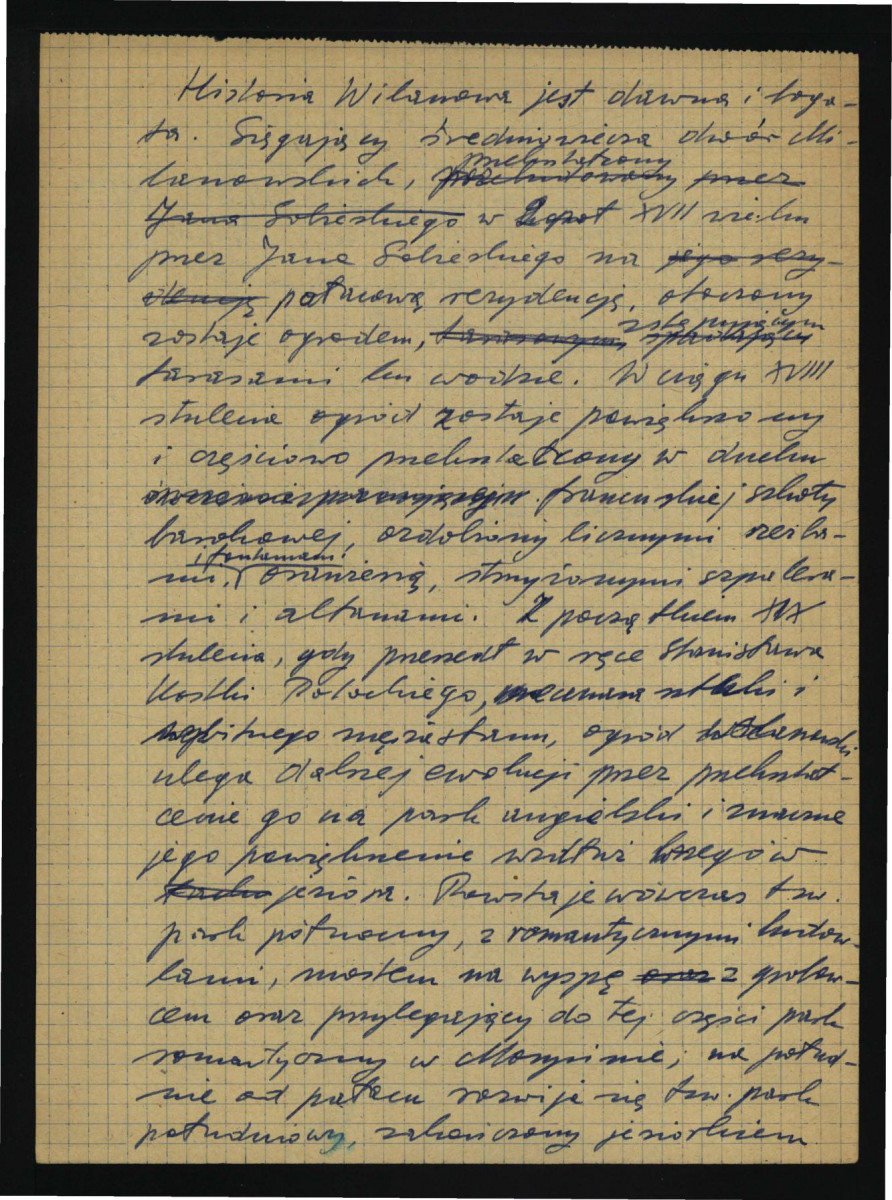 Historia Wilanowa jest dawna i boga-
ta. Sięgający średniowiecza dwór Mi-
przekształcony
lanowskich, przebudowany przez
Jana Sobieskiego w 2 poł XVII wieku
przez Jana Sobieskiego na jego rezy-
dencję pałacową rezydencję, otoczony
zstępującym
zostaje ogrodem, tarasowym
tarasami ku wodzie. W ciągu XVIII
stulecia ogród zostaje powiększony
i częściowo przekształcony w duchu
francuskiej szkoły
barokowej, ozdobiony licznymi rzeźba-
i fontannami
mi, oranżerią, strzyżonymi szpalera-
mi i altanami. Z początkiem XIX
stulecia, gdy przeszedł w ręce Stanisława
Kostki Potockiego, mecenasa sztuki i
wybitnego męża stanu, ogród wilanowski
ulega dalszej ewolucji przez przekształ-
cenie go na park angielski i znaczne
jego powiększenie wzdłuż brzegów
jeziora. Powstaje wówczas t.zw.
park północny, z romantycznymi budow-
lami, mostem na wyspę oraz z grobow-
cem oraz przylegający do tej części park
romantyczny w Morysinie; na połud-
nie od pałacu rozwija się tzw. park
południowy, zakończony jeziorkiem